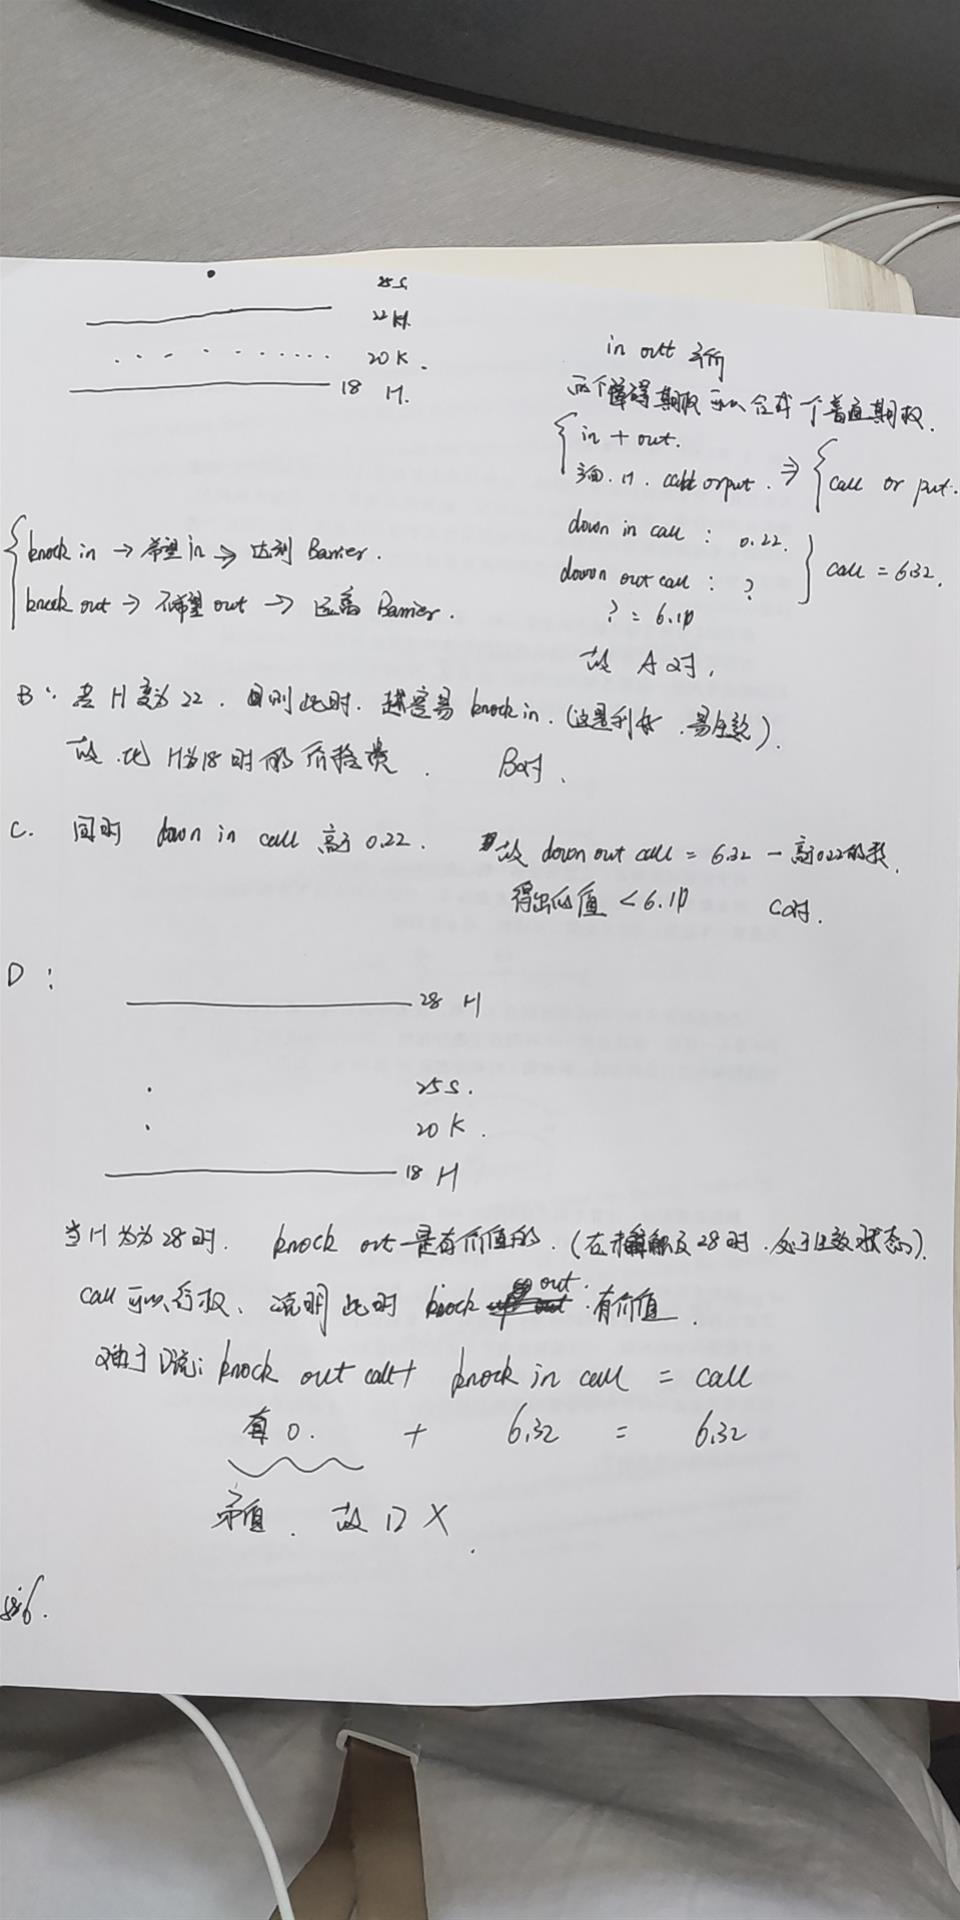 25 S.
22 H.
20 K.
18 H.
in out 平价
两个障碍期权可以合成一个普通期权.
in + out.
同. H. call or put. ⇒ call or put.
down in call : 0.22.
down out call : ?
call = 6.32.
? = 6.10
故 A对.
knock in → 希望 in → 达到 Barrier.
knock out → 不希望 out → 远离 Barrier.
B: 若 H变为 22. 则此时. 越容易 knock in. (这是利好. 易生效).
故. 比 H为18时的价格贵. B对.
C. 同时 down in call 高于 0.22. 故 down out call = 6.32 - 高于0.22的数.
得出的值 < 6.10 C对.
D :
28 H
25 S.
20 K.
18 H
当 H 为 28时. knock out 是有价值的. (在未触及28时. 处于生效状态).
call 可以行权、说明此时 knock out 有价值.
对于D说: knock out call + knock in call = call
有 0. + 6.32 = 6.32
矛盾. 故 D X.